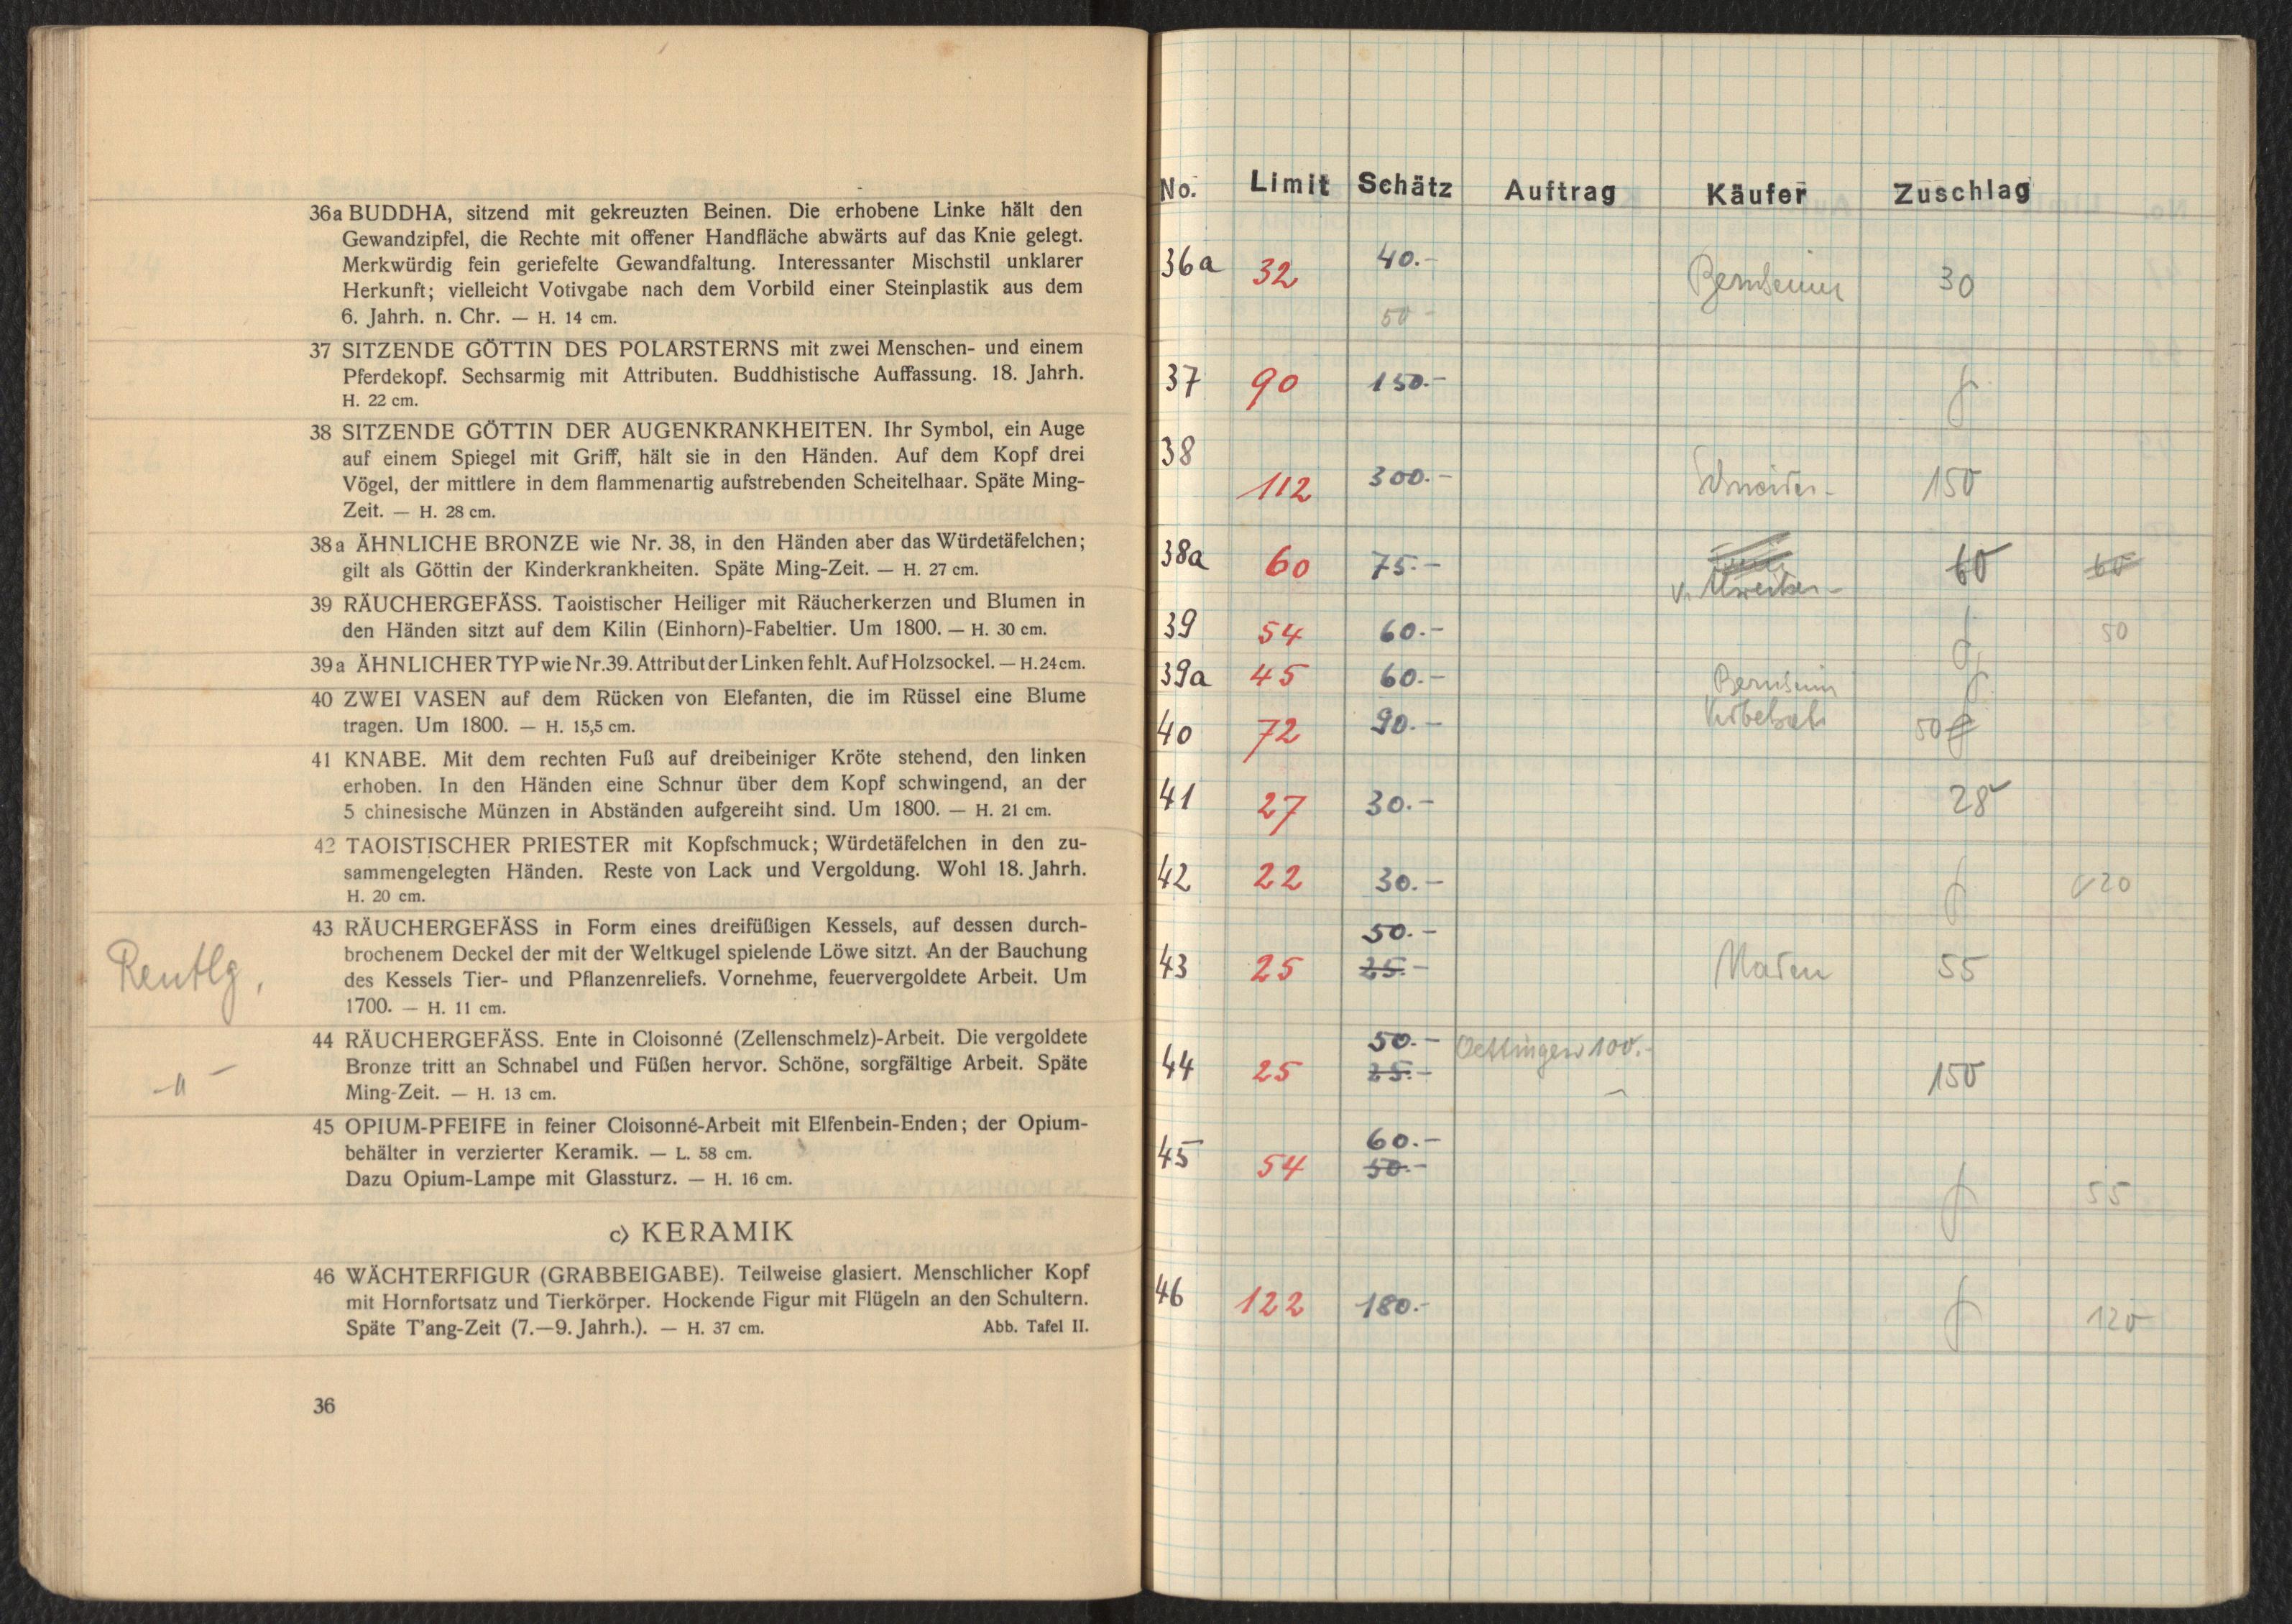 36a BUDDHA, sitzend mit gekreuzten Beinen. Die erhobene Linke hält den
Gewandzipfel, die Rechte mit offener Handfläche abwärts auf das Knie gelegt.
Merkwürdig fein geriefelte Gewandfaltung. Interessanter Mischstil unklarer
Herkunft; vielleicht Votivgabe nach dem Vorbild einer Steinplastik aus dem
6. Jahrh. n. Chr. — H. 14 cm.
37 SITZENDE GÖTTIN DES POLARSTERNS mit zwei Menschen- und einem
Pferdekopf. Sechsarmig mit Attributen. Buddhistische Auffassung. 18. Jahrh.
H. 22 cm.
38 SITZENDE GÖTTIN DER AUGENKRANKHEITEN. Ihr Symbol, ein Auge
auf einem Spiegel mit Griff, hält sie in den Händen. Auf dem Kopf drei
Vögel, der mittlere in dem flammenartig aufstrebenden Scheitelhaar. Späte Ming-
Zeit. — H. 28 cm.
38a ÄHNLICHE BRONZE wie Nr. 38, in den Händen aber das Würdetäfelchen;
gilt als Göttin der Kinderkrankheiten. Späte Ming-Zeit. — H. 27 cm.
39 RÄUCHERGEFÄSS. Taoistischer Heiliger mit Räucherkerzen und Blumen in
den Händen sitzt auf dem Kilin (Einhorn)-Fabeltier. Um 1800. — H. 30 cm.
39a ÄHNLICHER TYP wie Nr. 39. Attribut der Linken fehlt. Auf Holzsockel. — H. 24 cm.
40 ZWEI VASEN auf dem Rücken von Elefanten, die im Rüssel eine Blume
tragen. Um 1800. — H. 15,5 cm.
41 KNABE. Mit dem rechten Fuß auf dreibeiniger Kröte stehend, den linken
erhoben. In den Händen eine Schnur über dem Kopf schwingend, an der
5 chinesische Münzen in Abständen aufgereiht sind. Um 1800. — H. 21 cm.
42 TAOISTISCHER PRIESTER mit Kopfschmuck; Würdetäfelchen in den zu-
sammengelegten Händen. Reste von Lack und Vergoldung. Wohl 18. Jahrh.
H. 20 cm.
43 RÄUCHERGEFÄSS in Form eines dreifüßigen Kessels, auf dessen durch-
brochenem Deckel der mit der Weltkugel spielende Löwe sitzt. An der Bauchung
des Kessels Tier- und Pflanzenreliefs. Vornehme, feuervergoldete Arbeit. Um
1700. — H. 11 cm.
Reutlg.
44 RÄUCHERGEFÄSS. Ente in Cloisonné (Zellenschmelz)-Arbeit. Die vergoldete
Bronze tritt an Schnabel und Füßen hervor. Schöne, sorgfältige Arbeit. Späte
Ming-Zeit. — H. 13 cm.
-"-
45 OPIUM-PFEIFE in feiner Cloisonné-Arbeit mit Elfenbein-Enden; der Opium-
behälter in verzierter Keramik. — L. 58 cm.
Dazu Opium-Lampe mit Glassturz. — H. 16 cm.
c) KERAMIK
46 WÄCHTERFIGUR (GRABBEIGABE). Teilweise glasiert. Menschlicher Kopf
mit Hornfortsatz und Tierkörper. Hockende Figur mit Flügeln an den Schultern.
Späte T'ang-Zeit (7.—9. Jahrh.). — H. 37 cm. Abb. Tafel II.
36
No. Limit Schätz Auftrag Käufer Zuschlag
36a 32 40.- Bernheimer 30
50-
37 90 150.-
38 112 300.- Schneider 150
38a 60 75.- 60 60
39 54 60.- 50
39a 45 60.- Bernheim
40 72 90.- 50
41 27 30.- 28
42 22 30.- 20
50.-
43 25 25.- 55
50.- Oettingen 100.-
44 25 25.- 150
60.-
45 54 50.- 55
46 122 180.- 120